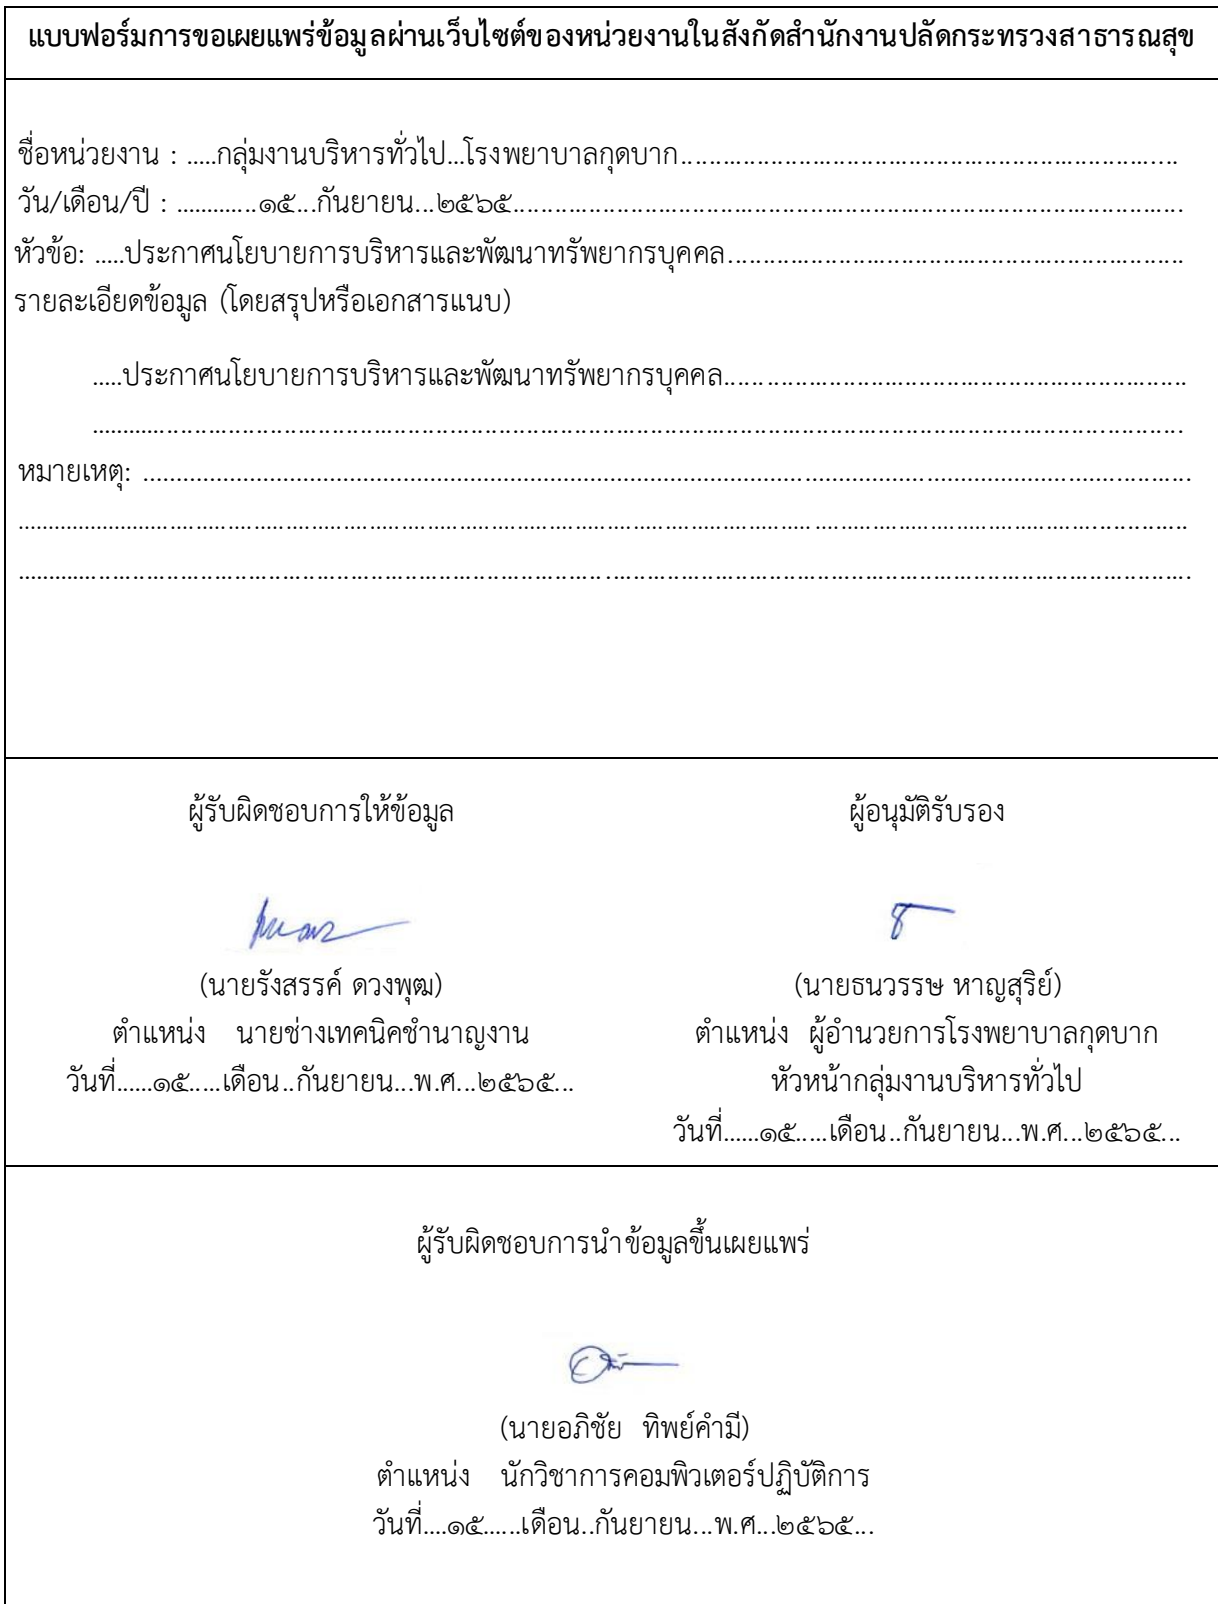 แบบฟอร์มการขอเผยแพร่ข้อมูลผ่านเว็บไซต์ของหน่วยงานในสังกัดสำนักงานปลัดกระทรวงสาธารณสุข
ชื่อหน่วยงาน : .....กลุ่มงานบริหารทั่วไป...โรงพยาบาลกุดบาก..............................................................................
วัน/เดือน/ปี : .............๑๕...กันยายน...๒๕๖๕.........................................................................................................
หัวข้อ: .....ประกาศนโยบายการบริหารและพัฒนาทรัพยากรบุคคล.......................................................................
รายละเอียดข้อมูล (โดยสรุปหรือเอกสารแนบ)
.....ประกาศนโยบายการบริหารและพัฒนาทรัพยากรบุคคล.......................................................................
..............................................................................................................................................................
หมายเหตุ: ..............................................................................................................................................................
..............................................................................................................................................................................
..............................................................................................................................................................................
ผู้รับผิดชอบการให้ข้อมูล ผู้อนุมัติรับรอง
(นายรังสรรค์ ดวงพุฒ) (นายธนวรรษ หาญสุริย์)
ตำแหน่ง นายช่างเทคนิคชำนาญงาน ตำแหน่ง ผู้อำนวยการโรงพยาบาลกุดบาก
วันที่......๑๕.....เดือน..กันยายน...พ.ศ...๒๕๖๕... หัวหน้ากลุ่มงานบริหารทั่วไป
วันที่......๑๕.....เดือน..กันยายน...พ.ศ...๒๕๖๕...
ผู้รับผิดชอบการนำข้อมูลขึ้นเผยแพร่
(นายอภิชัย ทิพย์คำมี)
ตำแหน่ง นักวิชาการคอมพิวเตอร์ปฏิบัติการ
วันที่....๑๕......เดือน..กันยายน...พ.ศ...๒๕๖๕...